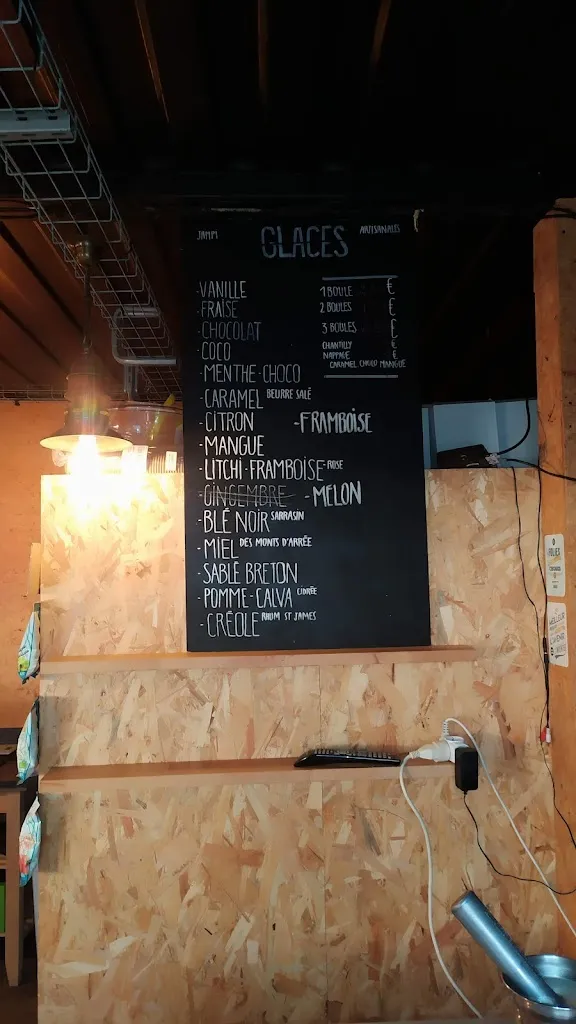 JAMPI GLACES ARTISANALES
-VANILLE
-FRAISE
-CHOCOLAT
-COCO
-MENTHE-CHOCO
-CARAMEL BEURRE SALÉ
-CITRON -FRAMBOISE
-MANGUE
-LITCHI-FRAMBOISE-ROSE
-GINGEMBRE -MELON
-BLÉ NOIR SARRASIN
-MIEL DES MONTS D'ARRÉE
-SABLÉ BRETON
-POMME-CALVA CIDRÉE
-CRÉOLE RHUM ST JAMES
1 BOULE €
2 BOULES €
3 BOULES €
CHANTILLY €
NAPPAGE €
CARAMEL CHOCO MANGUE